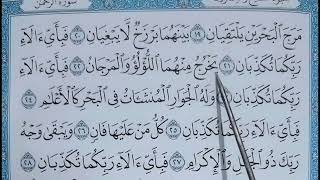 سورة الرحمن
مَرَجَ ٱلْبَحْرَيْنِ يَلْتَقِيَانِ ١٩ بَيْنَهُمَا بَرْزَخٌ لَّا يَبْغِيَانِ ٢٠ فَبِأَىِّ ءَالَآءِ
رَبِّكُمَا تُكَذِّبَانِ ٢١ يَخْرُجُ مِنْهُمَا ٱللُّؤْلُؤُ وَٱلْمَرْجَانُ ٢٢ فَبِأَىِّ ءَالَآءِ
رَبِّكُمَا تُكَذِّبَانِ ٢٣ وَلَهُ ٱلْجَوَارِ ٱلْمُنشَـَٔاتُ فِى ٱلْبَحْرِ كَٱلْأَعْلَـٰمِ ٢٤
فَبِأَىِّ ءَالَآءِ رَبِّكُمَا تُكَذِّبَانِ ٢٥ كُلُّ مَنْ عَلَيْهَا فَانٍ ٢٦ وَيَبْقَىٰ وَجْهُ
رَبِّكَ ذُو ٱلْجَلَـٰلِ وَٱلْإِكْرَامِ ٢٧ فَبِأَىِّ ءَالَآءِ رَبِّكُمَا تُكَذِّبَانِ ٢٨